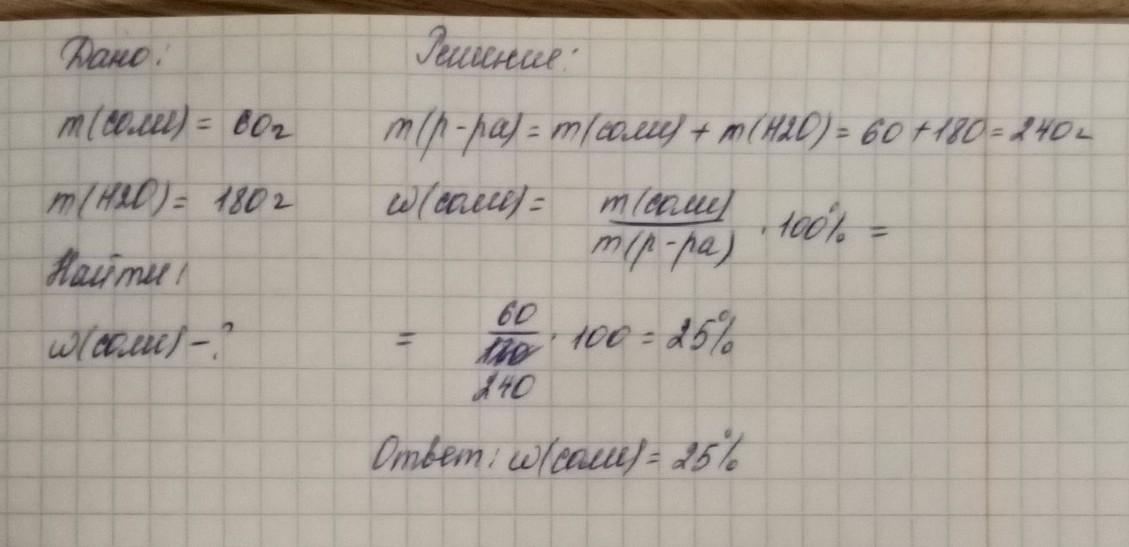 Дано:
m(соли) = 60г
m(H2O) = 180г
Найти:
w(соли) - ?
Решение:
m(р-ра) = m(соли) + m(H2O) = 60 + 180 = 240г
w(соли) = m(соли) / m(р-ра) · 100% =
= 60 / 240 · 100 = 25%
Ответ: w(соли) = 25%